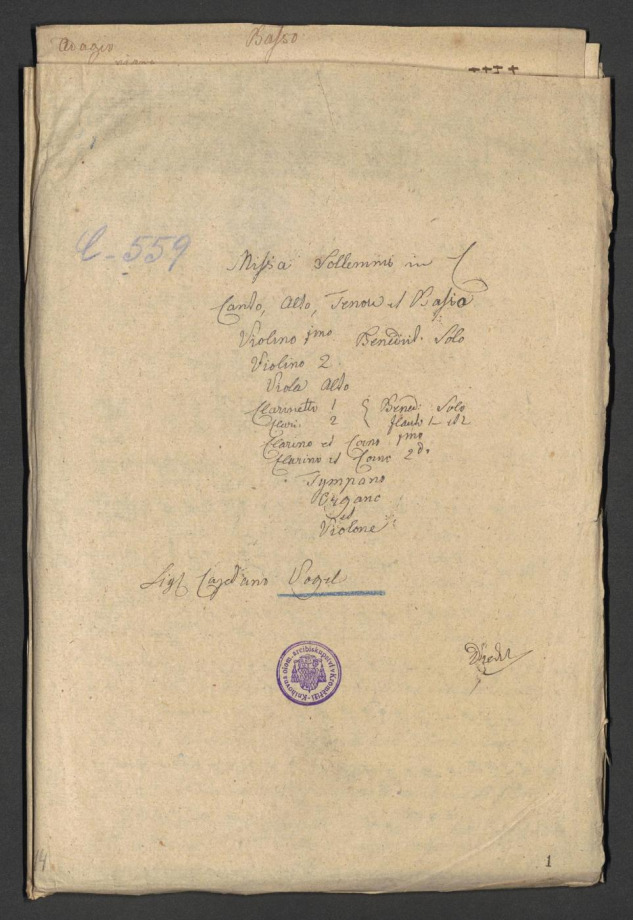 Adagio Basso
C-559
Missa Sollemnis in C
Canto, Alto, Tenore et Basso
Violino 1mo Benedict. Solo
Violino 2
Viola Alto
Clarinetto 1 { Bened: Solo
Clari. 2 { flauto 1 et 2
Clarino et Corno 1mo
Clarino et Corno 2do
Tympano
Organo
et
Violone
Sigl Cajetano Vogel
Knihovna olom. arcibiskupství v Kroměříži
1